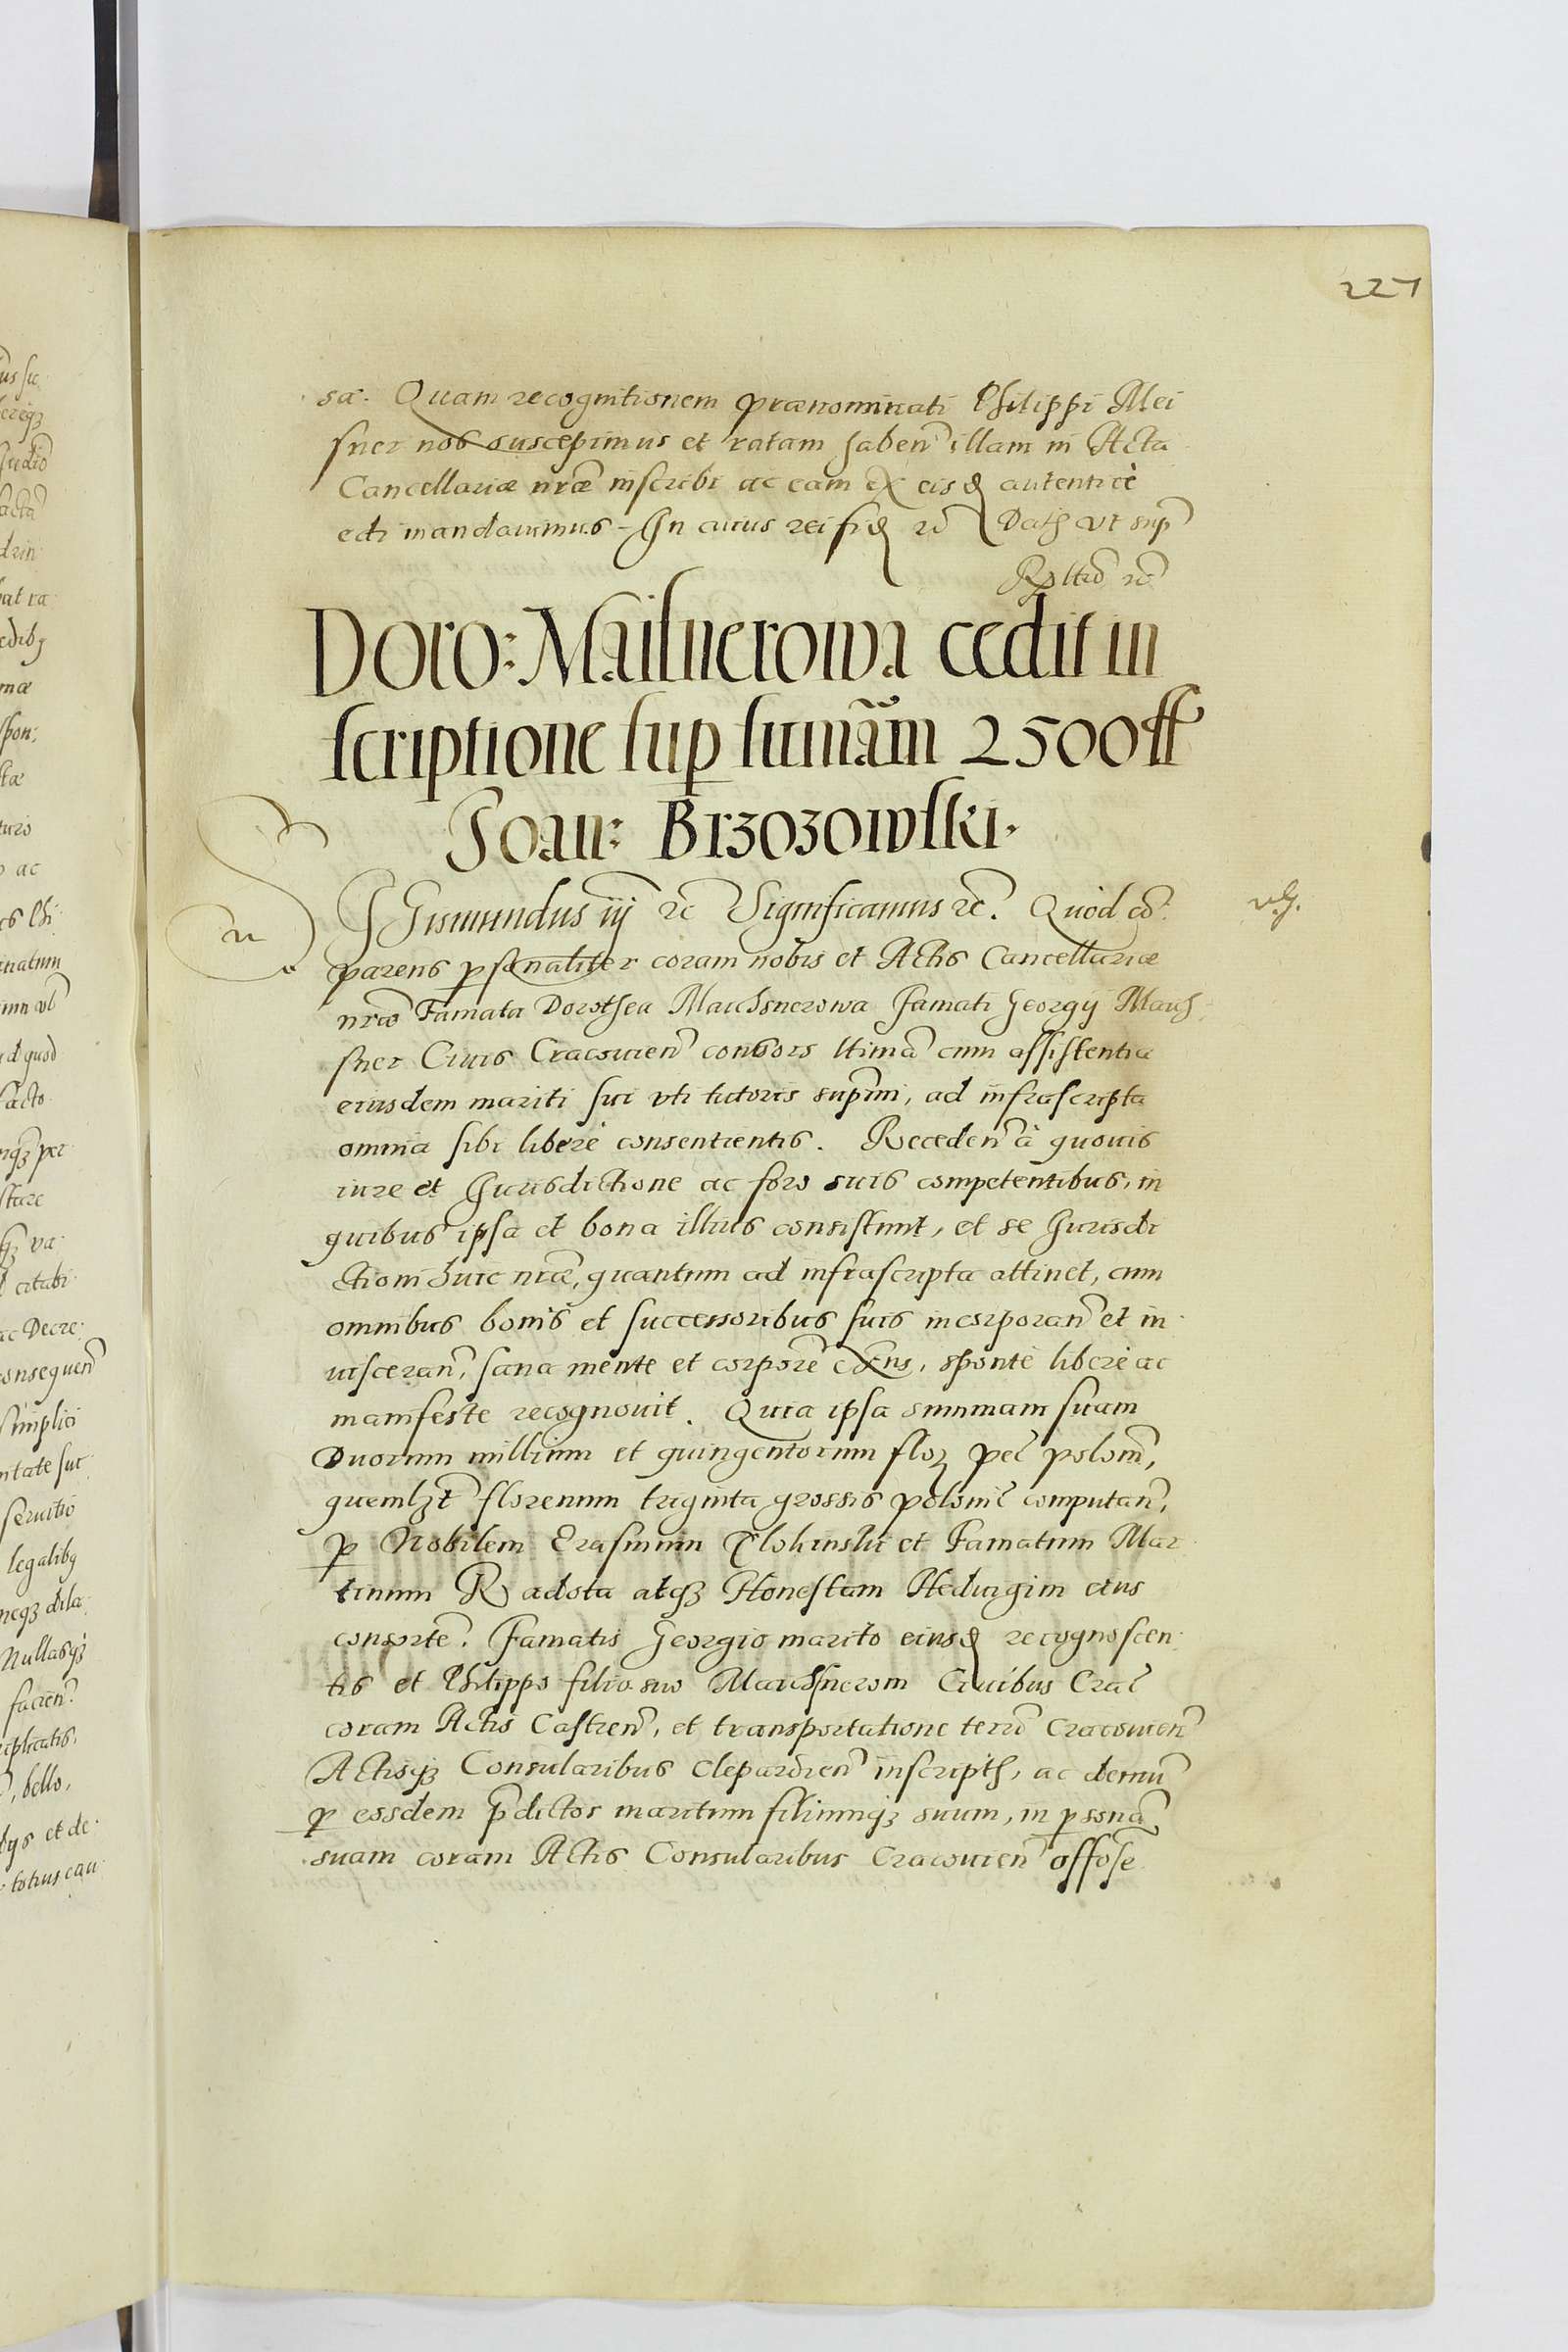 227
sæ. Quam recognitionem prænominati Philippi Mei
sner nos suscepimus et ratam haben̄ illam in Acta
Cancellariæ nræ inscribi ac eam ex eisđ autenticè
edi mandauimus – In cuius rei fiđ rc̄ Dath vt sup̄
Rpltio rc̄
Doro: Maisnerowa cedit in
scriptione sup summam 2500 ff
Joan: Brzozowski.
GISmundus iij rc̄ Significamus rc̄. Quòd cō: v.g.
parens personaliter coram nobis et Actis Cancellariæ
nræ Famata Dorothea Maichsnerowa Famati Georgij Maich-
sner Ciuis Cracouien̄ consors ltima cum assistentia
eiusdem mariti sui vti tutoris supmi, ad infrascripta
omnia sibi liberè consentientis. Receden̄ à quouis
iure et Jurisdictione ac foro suis competentibus, in
quibus ipsa et bona illius consistunt, et se Jurisdi
ctioni huic nræ, quantum ad infrascripta attinet, cum
omnibus bonis et successoribus suis incorporan̄ et in
uisceran̄, sana mente et corpore exn̄s, sponte liberè ac
manifeste recognouit. Quia ipsa summam suam
Duorum millium et quingentorum floz pec̄ polon̄,
quemlzt florenum triginta grossis polonic̄ computan̄,
p Nobilem Erasmum et Famatum Mar
tinum Radota atqz Honestam Heduigim eius
consorte. Famatis Georgio marito eiusđ recognoscen
tis et Philippo filio suo Maichsnerom Ciuibus Crac̄
coram Actis Castren̄, et transportatione terrū Cracouien̄
Actisqz Consularibus Clepardien̄ inscripth, ac demū
p eosdem p̄dictos maritum filiumqz suum, in psonā
suam coram Actis Consularibus Cracouien̄